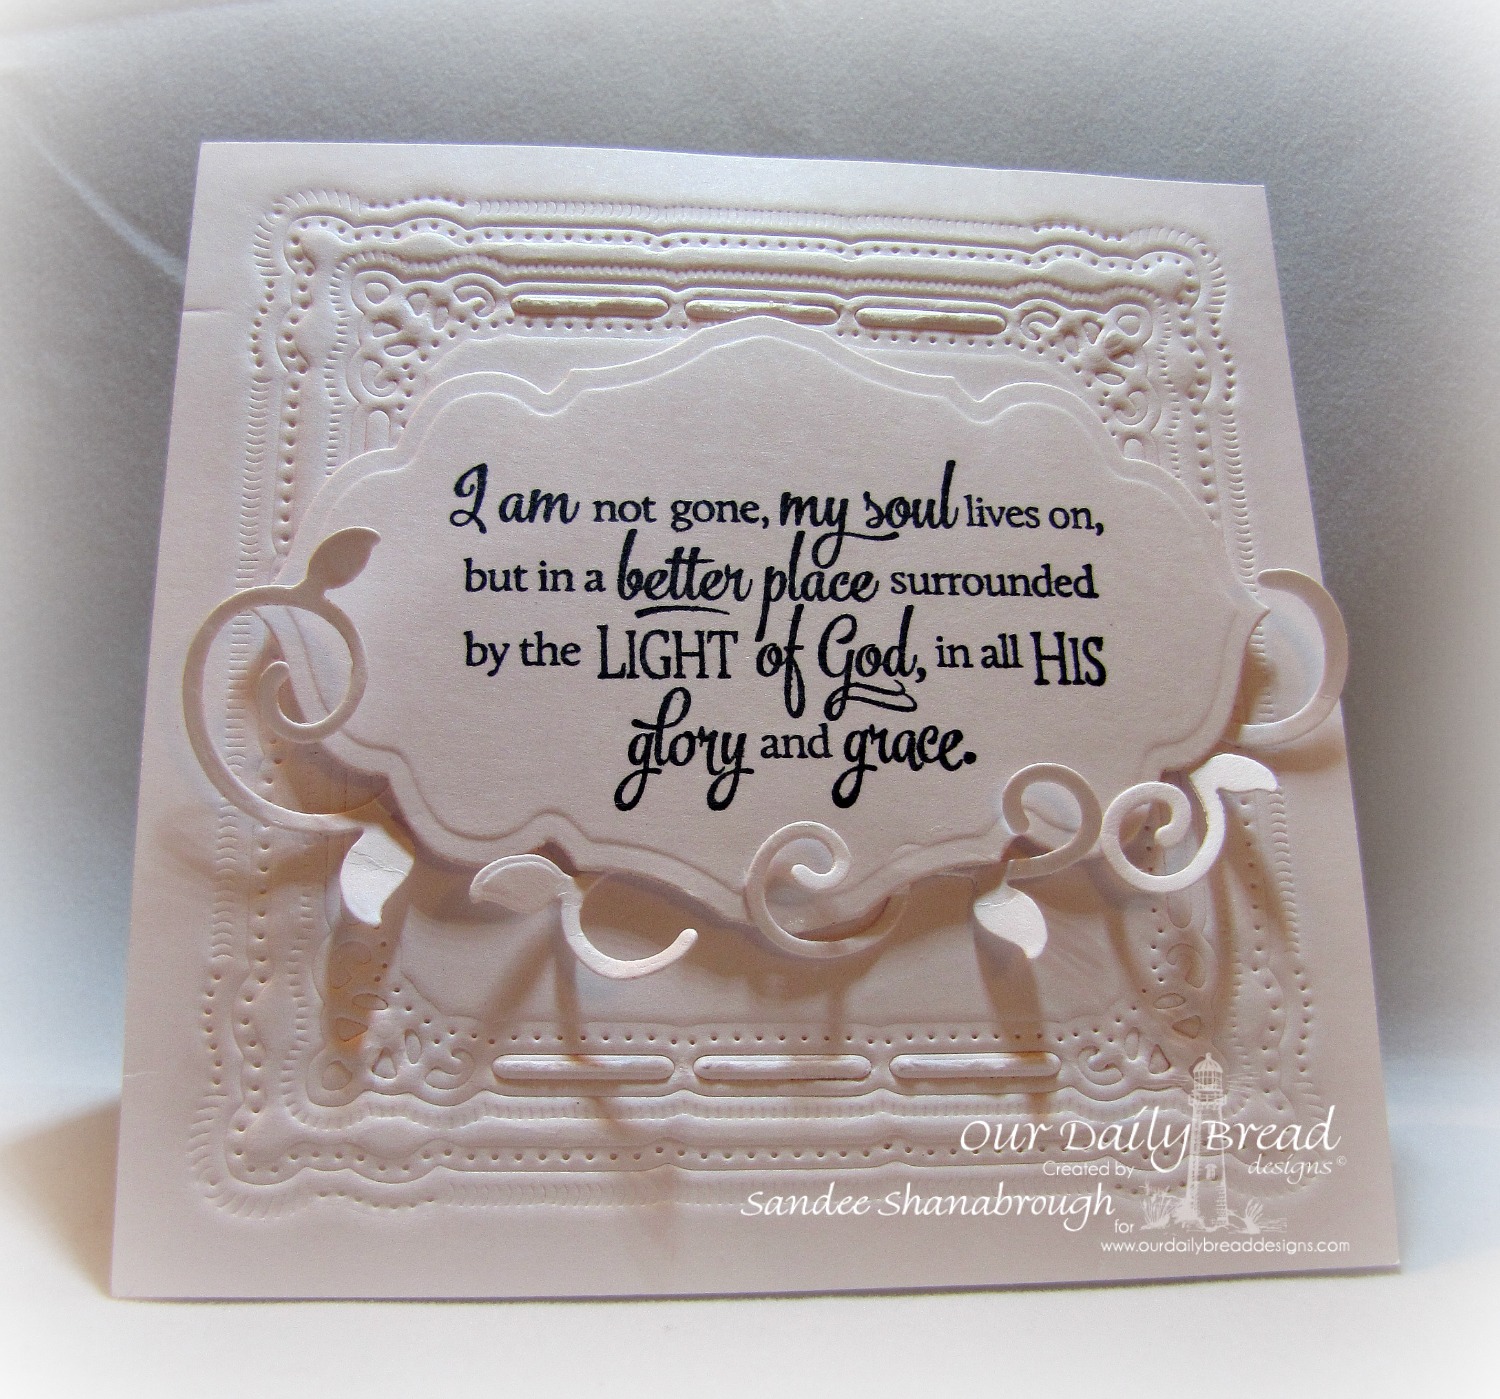 I am not gone, my soul lives on,
but in a better place surrounded
by the LIGHT of God, in all HIS
glory and grace.
Our Daily Bread
designs©
Created by
Sandee Shanabrough
for
www.ourdailybreaddesigns.com